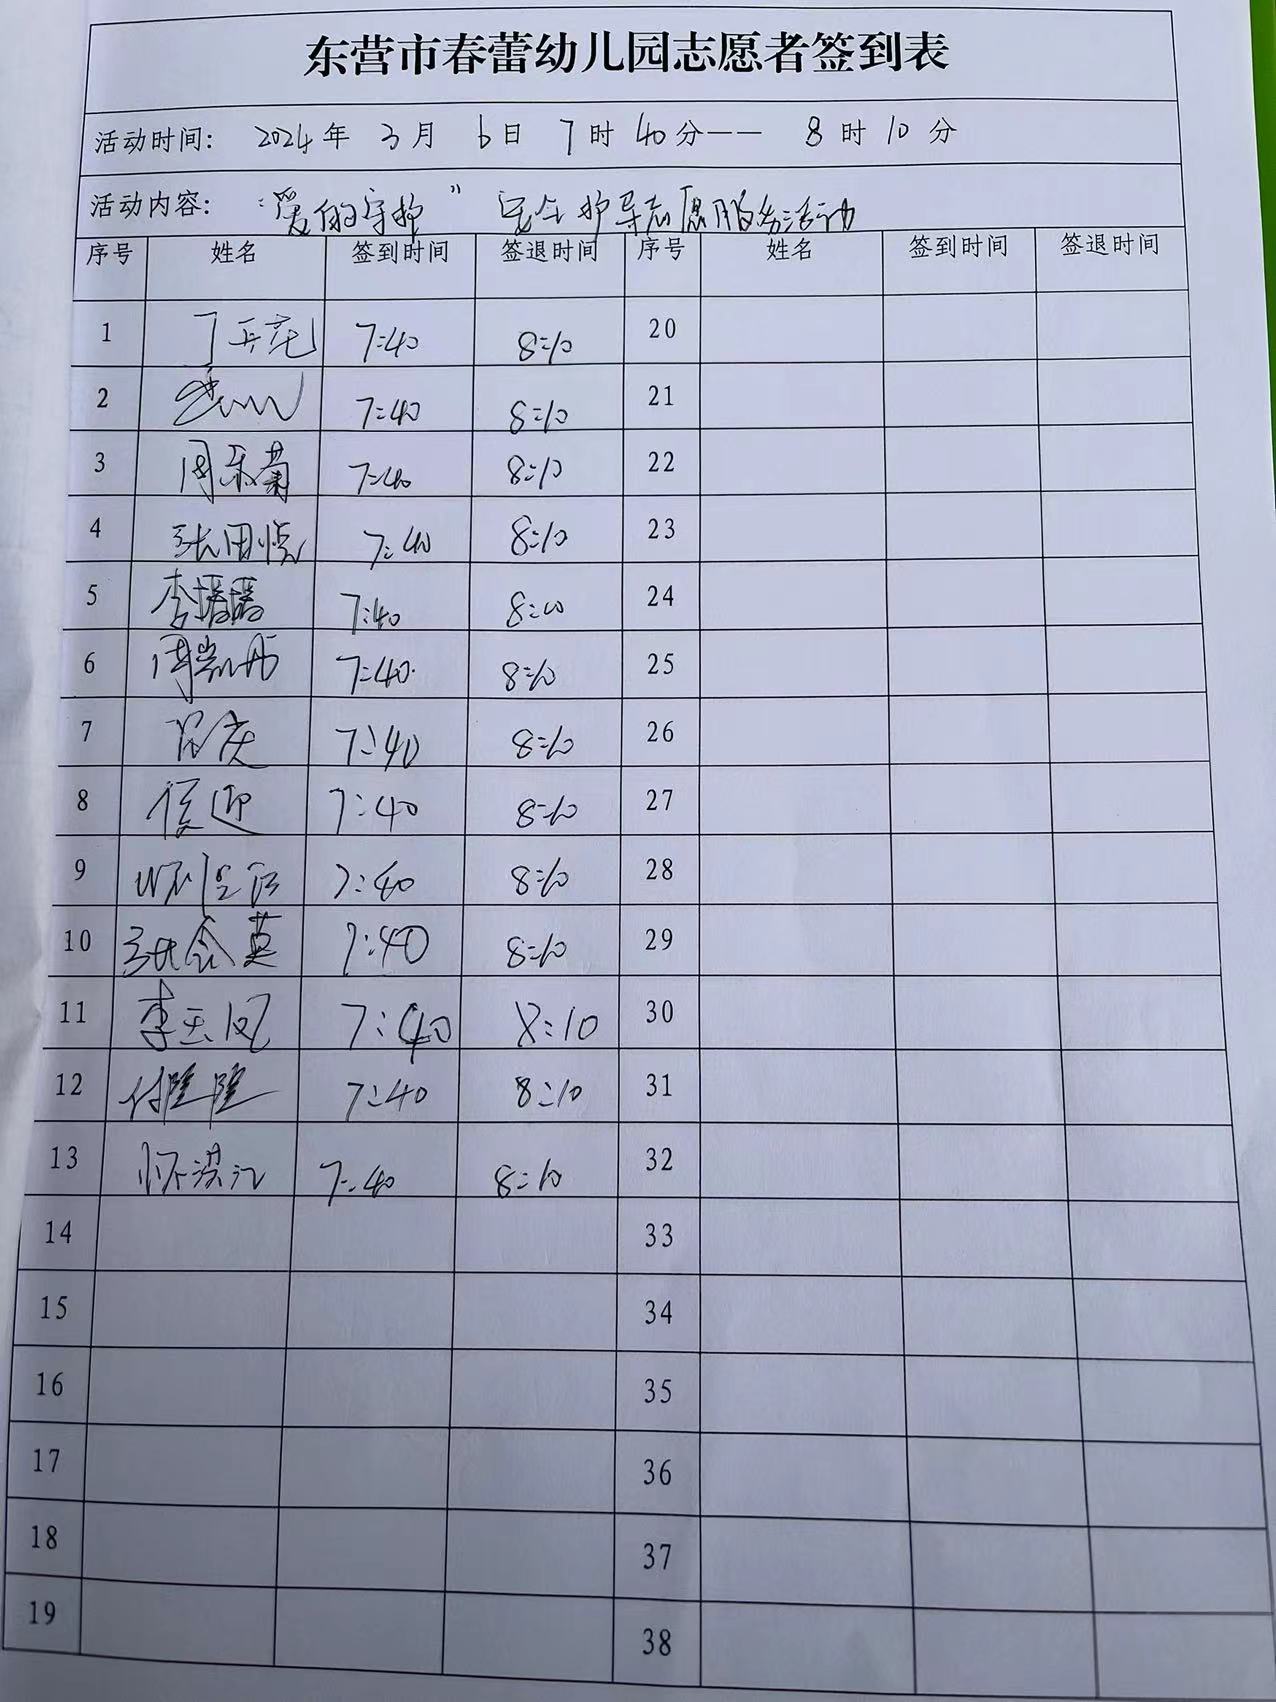 东营市春蕾幼儿园志愿者签到表
活动时间: 2024年 3月 6日 7时 40分—— 8时10分
活动内容: “爱的守护”安全护导志愿服务活动
序号 姓名 签到时间 签退时间 序号 姓名 签到时间 签退时间
1 7:40 8:10 20
2 7:40 8:10 21
3 周乐菊 7:40 8:10 22
4 张田悦 7:40 8:10 23
5 李璠璠 7:40 8:10 24
6 周凯丹 7:40 8:10 25
7 7:40 8:10 26
8 侯迎 7:40 8:10 27
9 7:40 8:10 28
10 张会英 7:40 8:10 29
11 李玉凤 7:40 8:10 30
12 付隆隆 7:40 8:10 31
13 怀洪江 7:40 8:10 32
14 33
15 34
16 35
17 36
18 37
19 38